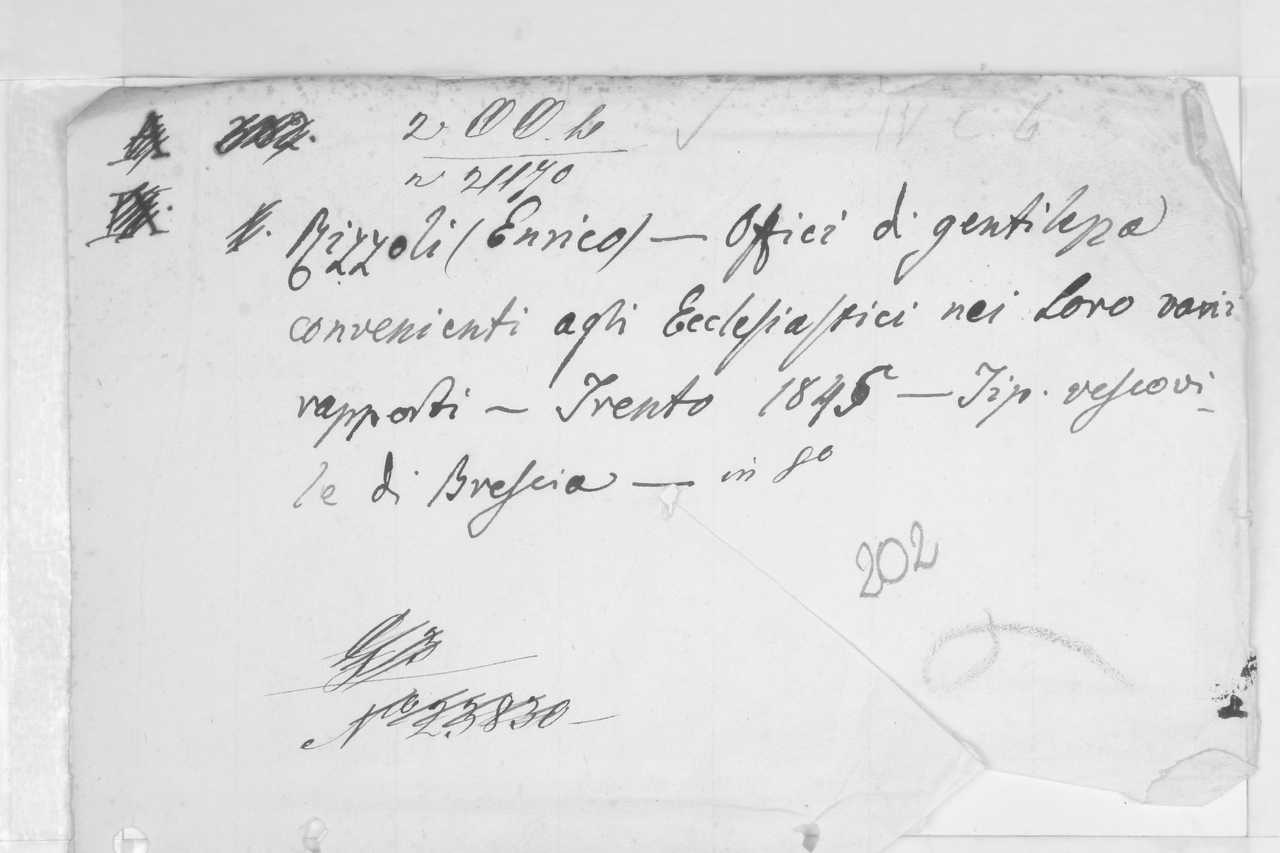 IV C. 6
n 21170
Rizzoli (Enrico) — Offici di gentilezza
convenienti agli Ecclesiastici nei Loro varii
rapporti — Trento 1845 — Tip. vescovi-
le di Brescia — in 8o
202
No 23830 —